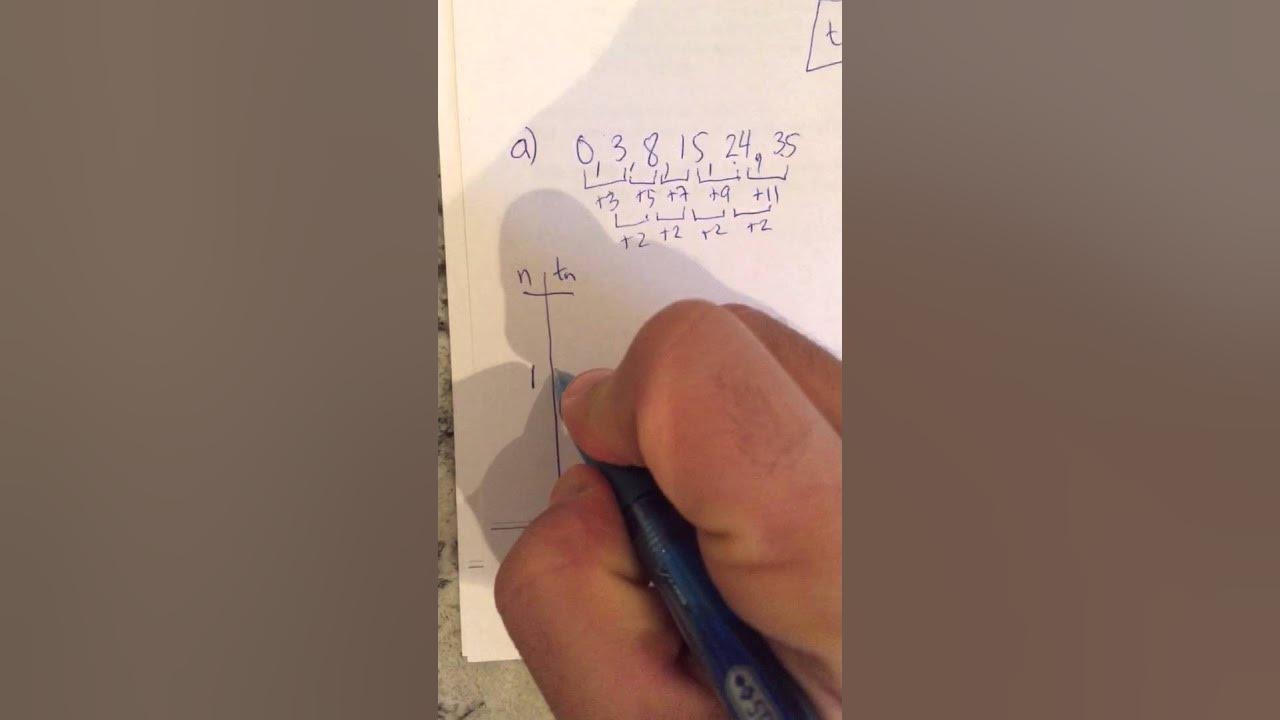 t
a) 0, 3, 8, 15, 24, 35
+3 +5 +7 +9 +11
+2 +2 +2 +2
n tn
1